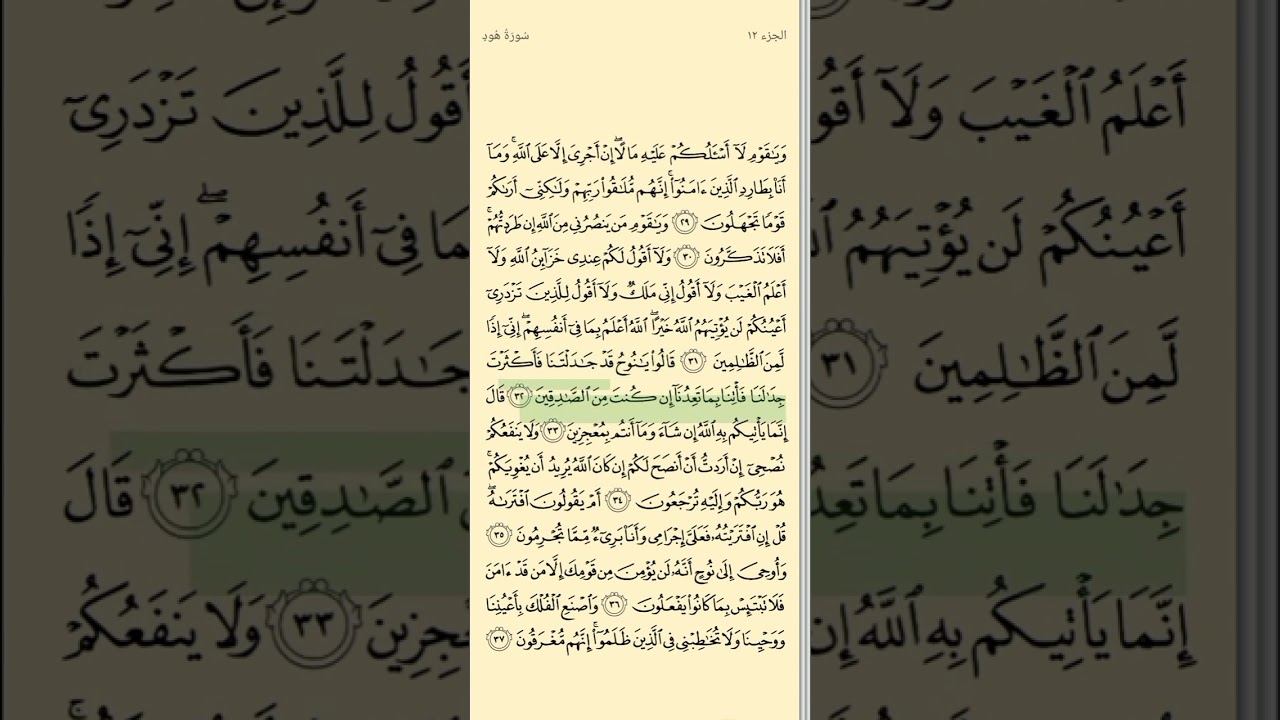 الجزء ١٢
سُورَةُ هُودٍ
وَيَٰقَوْمِ لَآ أَسْـَٔلُكُمْ عَلَيْهِ مَالًا ۖ إِنْ أَجْرِىَ إِلَّا عَلَى ٱللَّهِ ۚ وَمَآ
أَنَا۠ بِطَارِدِ ٱلَّذِينَ ءَامَنُوٓا۟ ۚ إِنَّهُم مُّلَٰقُوا۟ رَبِّهِمْ وَلَٰكِنِّىٓ أَرَىٰكُمْ
قَوْمًا تَجْهَلُونَ ٢٩ وَيَٰقَوْمِ مَن يَنصُرُنِى مِنَ ٱللَّهِ إِن طَرَدتُّهُمْ ۚ
أَفَلَا تَذَكَّرُونَ ٣٠ وَلَآ أَقُولُ لَكُمْ عِندِى خَزَآئِنُ ٱللَّهِ وَلَآ
أَعْلَمُ ٱلْغَيْبَ وَلَآ أَقُولُ إِنِّى مَلَكٌ وَلَآ أَقُولُ لِلَّذِينَ تَزْدَرِىٓ
أَعْيُنُكُمْ لَن يُؤْتِيَهُمُ ٱللَّهُ خَيْرًا ۖ ٱللَّهُ أَعْلَمُ بِمَا فِىٓ أَنفُسِهِمْ ۖ إِنِّىٓ إِذًا
لَّمِنَ ٱلظَّٰلِمِينَ ٣١ قَالُوا۟ يَٰنُوحُ قَدْ جَٰدَلْتَنَا فَأَكْثَرْتَ
جِدَٰلَنَا فَأْتِنَا بِمَا تَعِدُنَآ إِن كُنتَ مِنَ ٱلصَّٰدِقِينَ ٣٢ قَالَ
إِنَّمَا يَأْتِيكُم بِهِ ٱللَّهُ إِن شَآءَ وَمَآ أَنتُم بِمُعْجِزِينَ ٣٣ وَلَا يَنفَعُكُمْ
نُصْحِىٓ إِنْ أَرَدتُّ أَنْ أَنصَحَ لَكُمْ إِن كَانَ ٱللَّهُ يُرِيدُ أَن يُغْوِيَكُمْ ۚ
هُوَ رَبُّكُمْ وَإِلَيْهِ تُرْجَعُونَ ٣٤ أَمْ يَقُولُونَ ٱفْتَرَىٰهُ ۖ
قُلْ إِنِ ٱفْتَرَيْتُهُۥ فَعَلَىَّ إِجْرَامِى وَأَنَا۠ بَرِىٓءٌ مِّمَّا تُجْرِمُونَ ٣٥
وَأُوحِىَ إِلَىٰ نُوحٍ أَنَّهُۥ لَن يُؤْمِنَ مِن قَوْمِكَ إِلَّا مَن قَدْ ءَامَنَ
فَلَا تَبْتَئِسْ بِمَا كَانُوا۟ يَفْعَلُونَ ٣٦ وَٱصْنَعِ ٱلْفُلْكَ بِأَعْيُنِنَا
وَوَحْيِنَا وَلَا تُخَٰطِبْنِى فِى ٱلَّذِينَ ظَلَمُوٓا۟ ۚ إِنَّهُم مُّغْرَقُونَ ٣٧